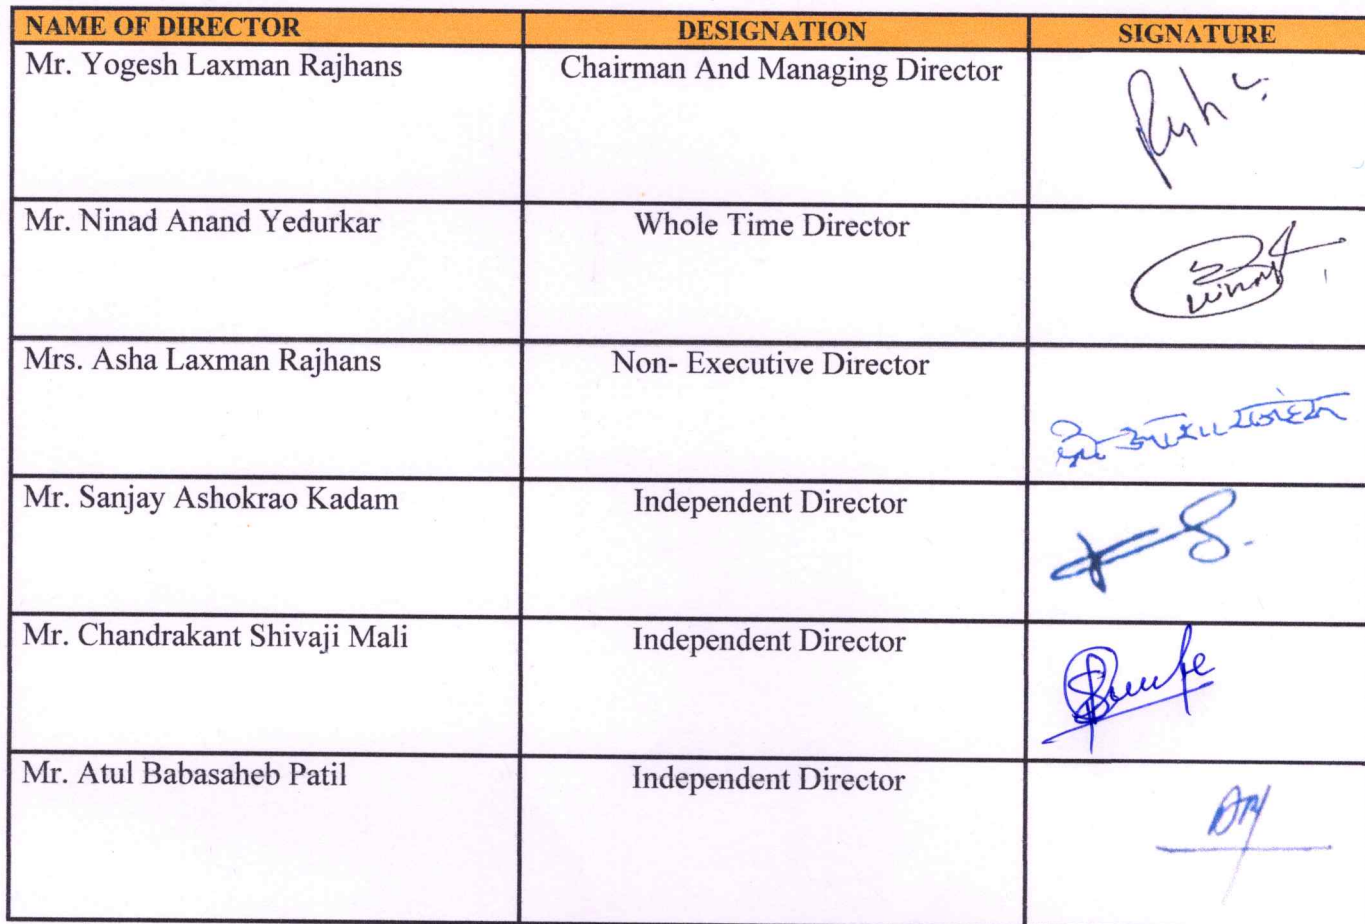 NAME OF DIRECTOR DESIGNATION SIGNATURE
Mr. Yogesh Laxman Rajhans Chairman And Managing Director
Mr. Ninad Anand Yedurkar Whole Time Director
Mrs. Asha Laxman Rajhans Non- Executive Director
Mr. Sanjay Ashokrao Kadam Independent Director
Mr. Chandrakant Shivaji Mali Independent Director
Mr. Atul Babasaheb Patil Independent Director